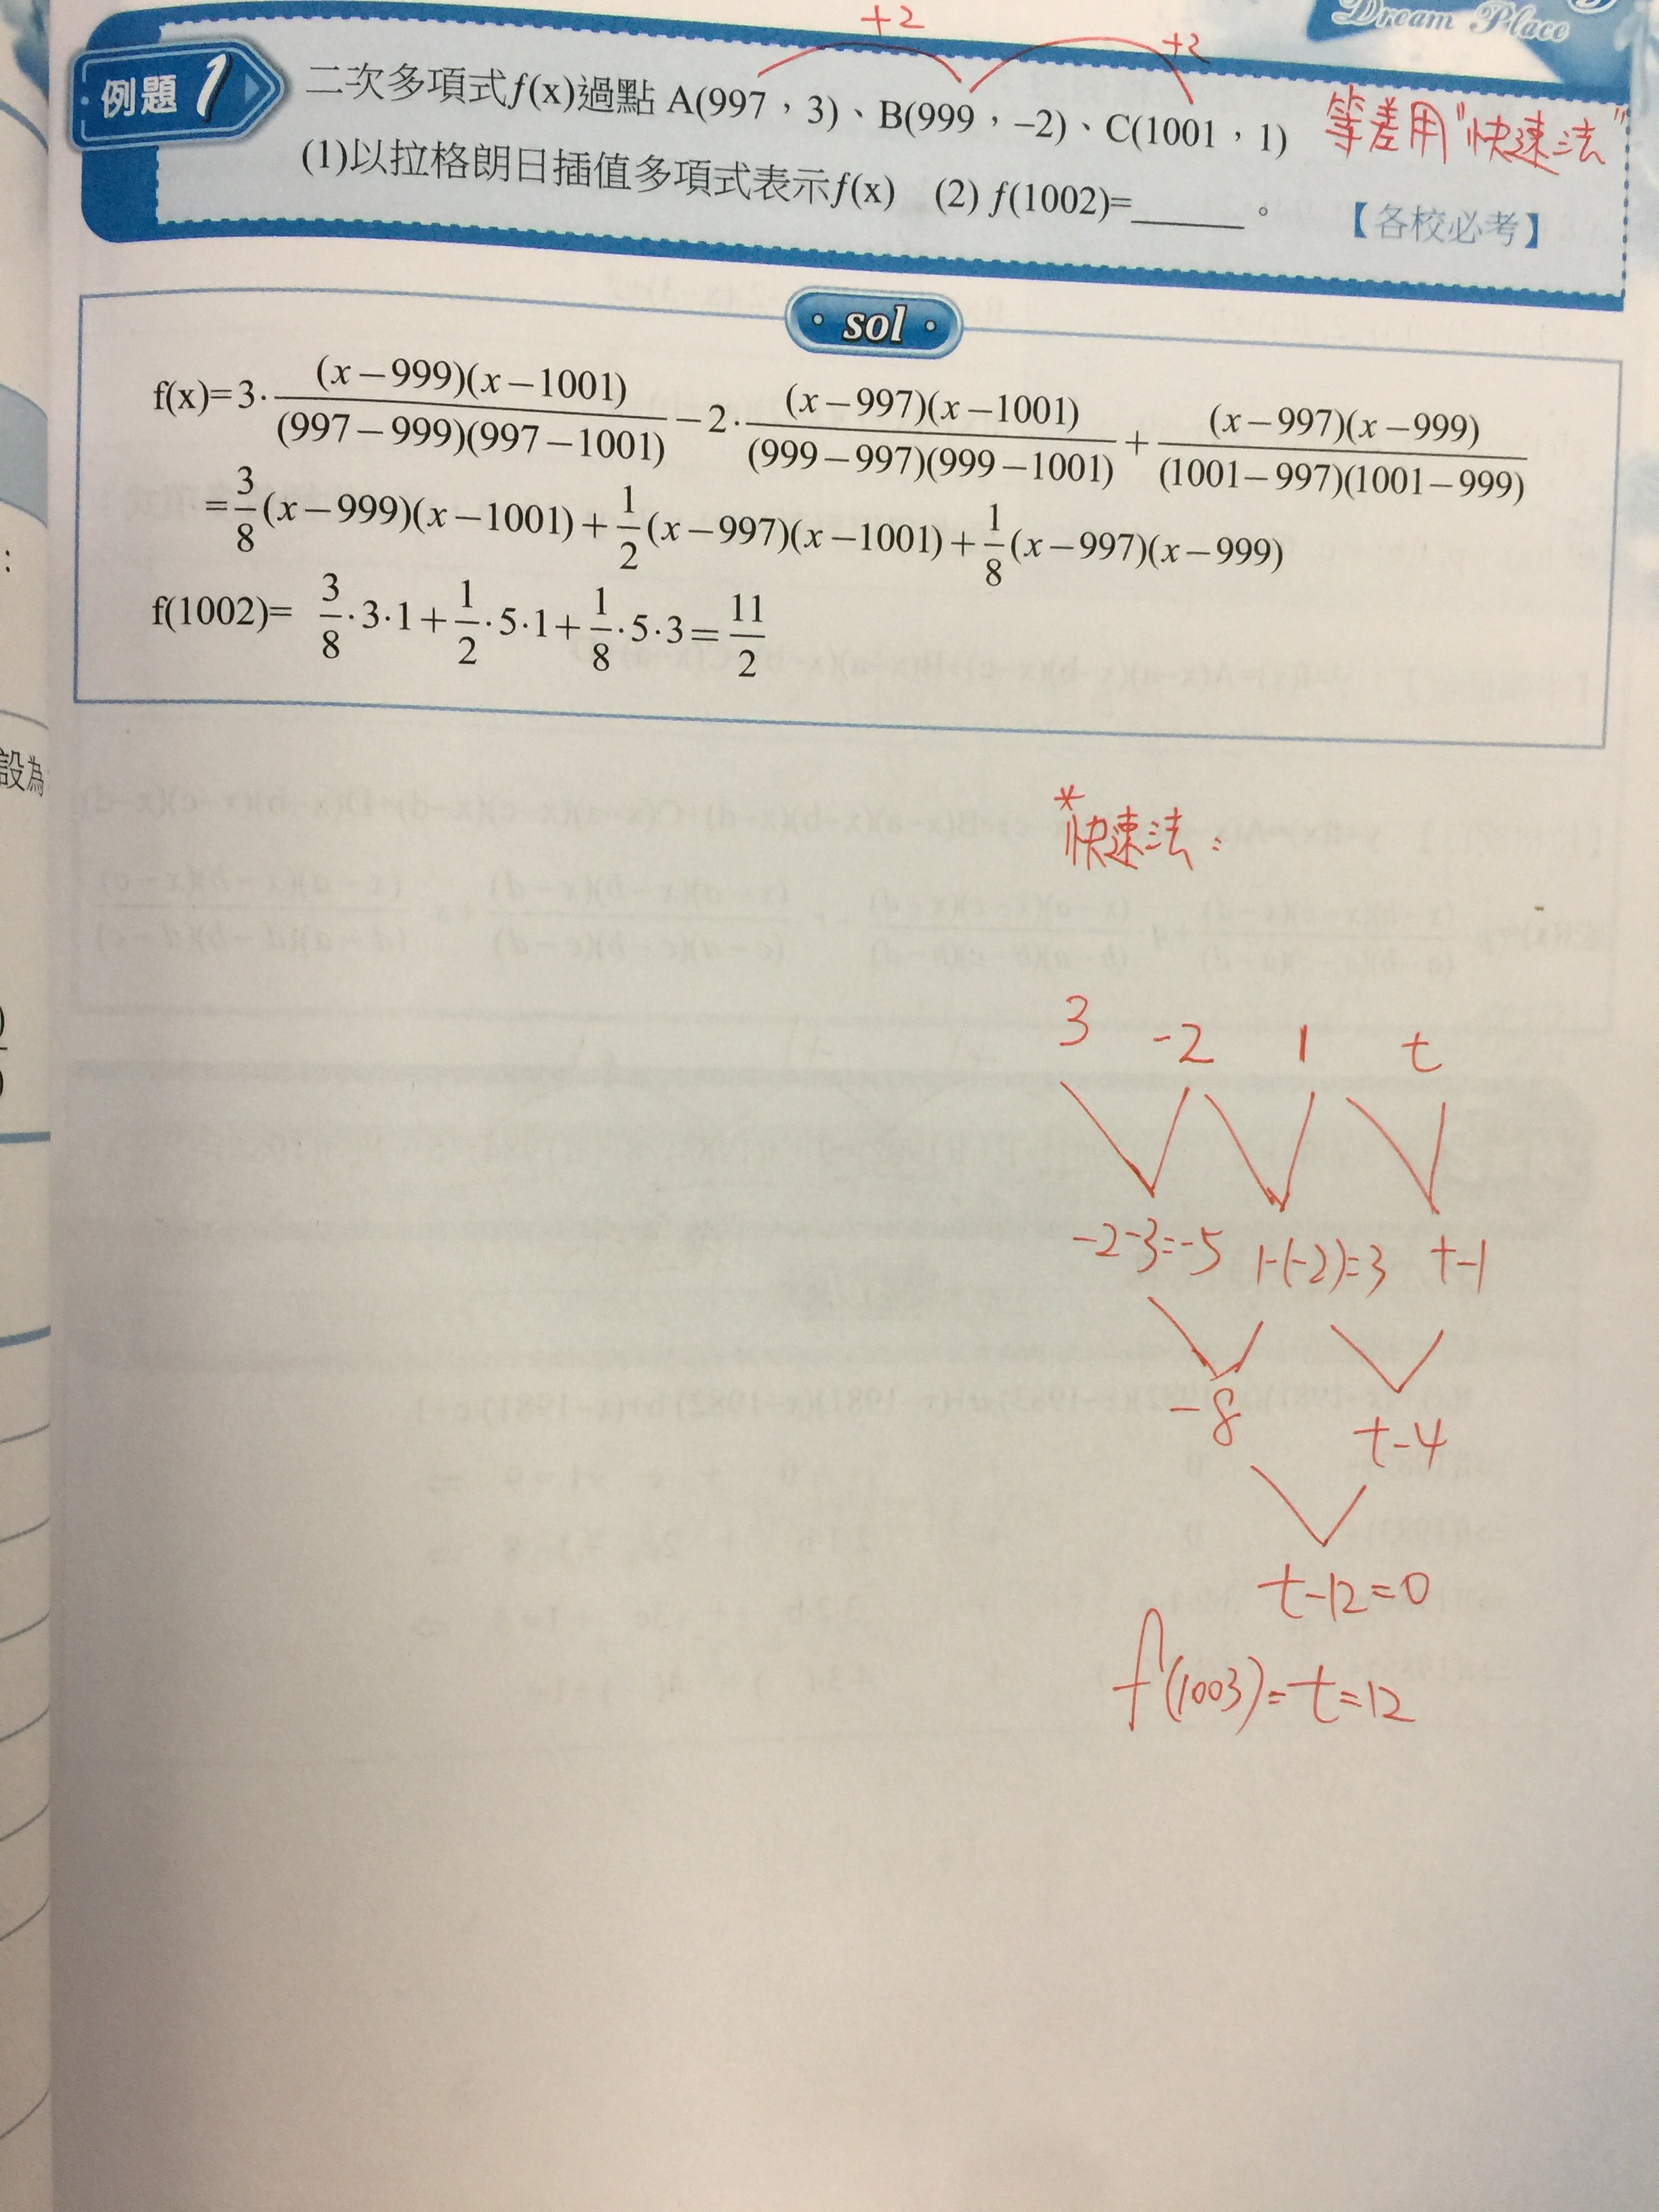 Dream Place
+2 +2
例題1
二次多項式f(x)過點 A(997，3)、B(999，–2)、C(1001，1)
等差用"快速法"
(1)以拉格朗日插值多項式表示f(x) (2) f(1002)=______。
【各校必考】
sol
f(x)=3·(x−999)(x−1001)/(997−999)(997−1001) −2·(x−997)(x−1001)/(999−997)(999−1001) + (x−997)(x−999)/(1001−997)(1001−999)
=3/8(x−999)(x−1001)+1/2(x−997)(x−1001)+1/8(x−997)(x−999)
f(1002)= 3/8·3·1+1/2·5·1+1/8·5·3=11/2
設為
*快速法：
3 -2 1 t
-2-3=-5 1-(-2)=3 t-1
-8 t-4
t-12=0
f(1003)=t=12